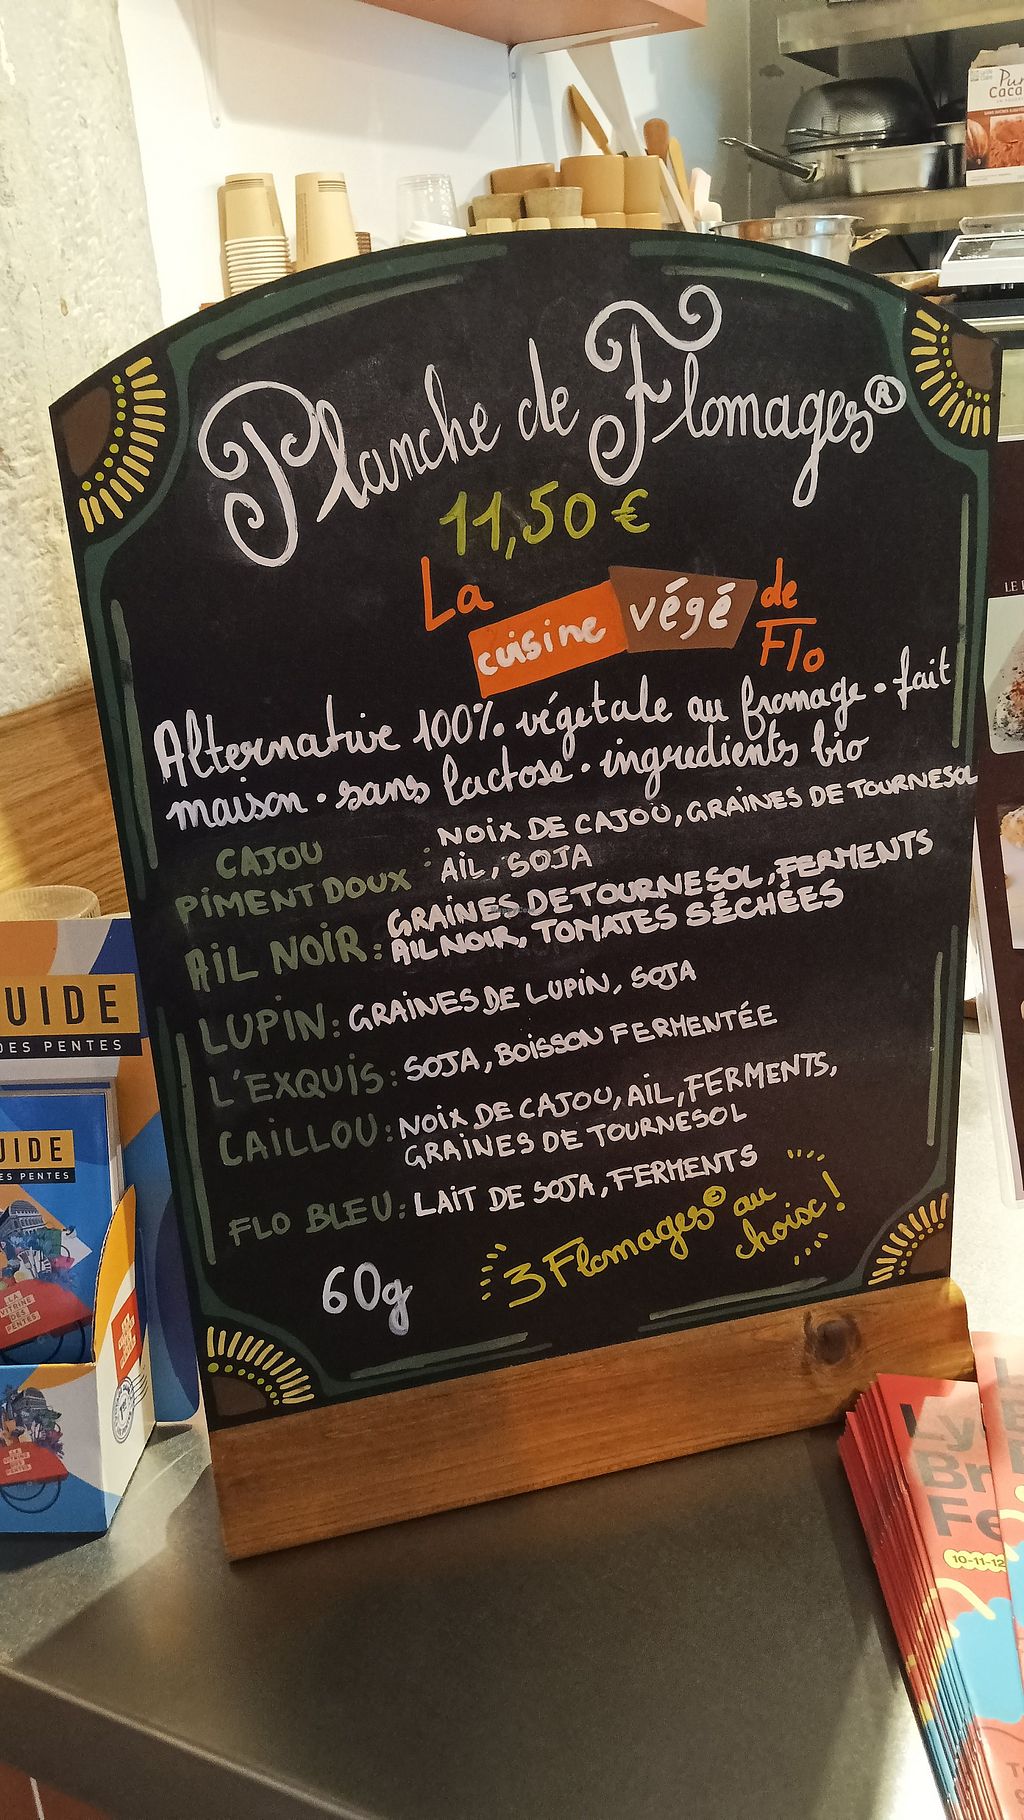 Pur
Caca
Planche de Flomages®
11,50 €
La cuisine végé de Flo
Alternative 100% végétale au fromage • fait
maison • sans lactose • ingredients bio
CAJOU
PIMENT DOUX : NOIX DE CAJOU, GRAINES DE TOURNESOL
AIL, SOJA
AIL NOIR : GRAINES DE TOURNESOL, FERMENTS
AIL NOIR, TOMATES SÉCHÉES
LUPIN : GRAINES DE LUPIN, SOJA
L'EXQUIS : SOJA, BOISSON FERMENTÉE
CAILLOU : NOIX DE CAJOU, AIL, FERMENTS,
GRAINES DE TOURNESOL
FLO BLEU : LAIT DE SOJA, FERMENTS
60g
3 Flomages© au
choix!
UIDE
DES PENTES
UIDE
ES PENTES
LA
VITRINE
DES
PENTES
Ly
Br
Fe
10-11-12